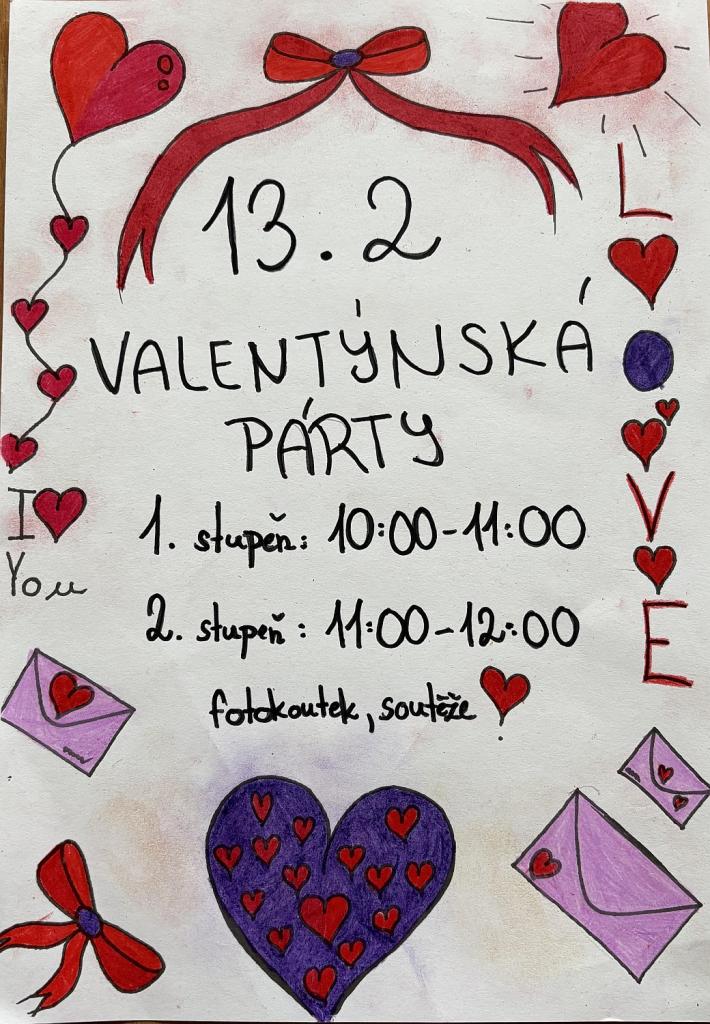 13.2
VALENTÝNSKÁ
PÁRTY
1. stupeň: 10:00-11:00
2. stupeň: 11:00-12:00
fotokoutek, soutěže
I
You
L
O
V
E